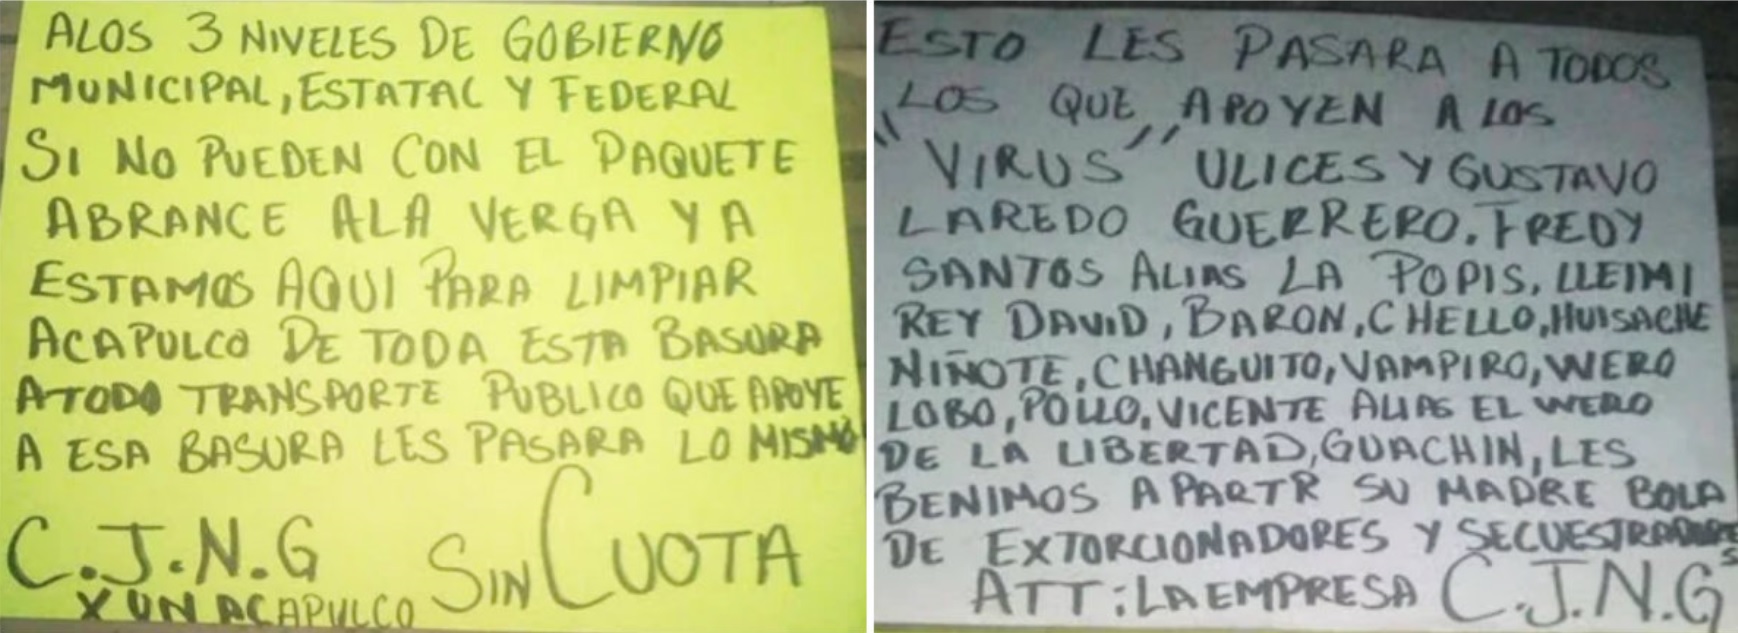 ALOS 3 NIVELES DE GOBIERNO
MUNICIPAL, ESTATAL Y FEDERAL
SI NO PUEDEN CON EL PAQUETE
ABRANCE ALA VERGA YA
ESTAMOS AQUI PARA LIMPIAR
ACAPULCO DE TODA ESTA BASURA
ATODO TRANSPORTE PUBLICO QUE APOYE
A ESA BASURA LES PASARA LO MISMO
C.J.N.G SIN CUOTA
X UN ACAPULCO
ESTO LES PASARA A TODOS
LOS QUE APOYEN A LOS
"VIRUS" ULICES Y GUSTAVO
LAREDO GUERRERO. FREDY
SANTOS ALIAS LA POPIS, LLEIMI
REY DAVID, BARON, CHELLO, HUISACHE
NIÑOTE, CHANGUITO, VAMPIRO, WERO
LOBO, POLLO, VICENTE ALIAS EL WERO
DE LA LIBERTAD, GUACHIN, LES
BENIMOS A PARTR SU MADRE BOLA
DE EXTORCIONADORES Y SECUESTRADORES
ATT: LA EMPRESA C.J.N.G